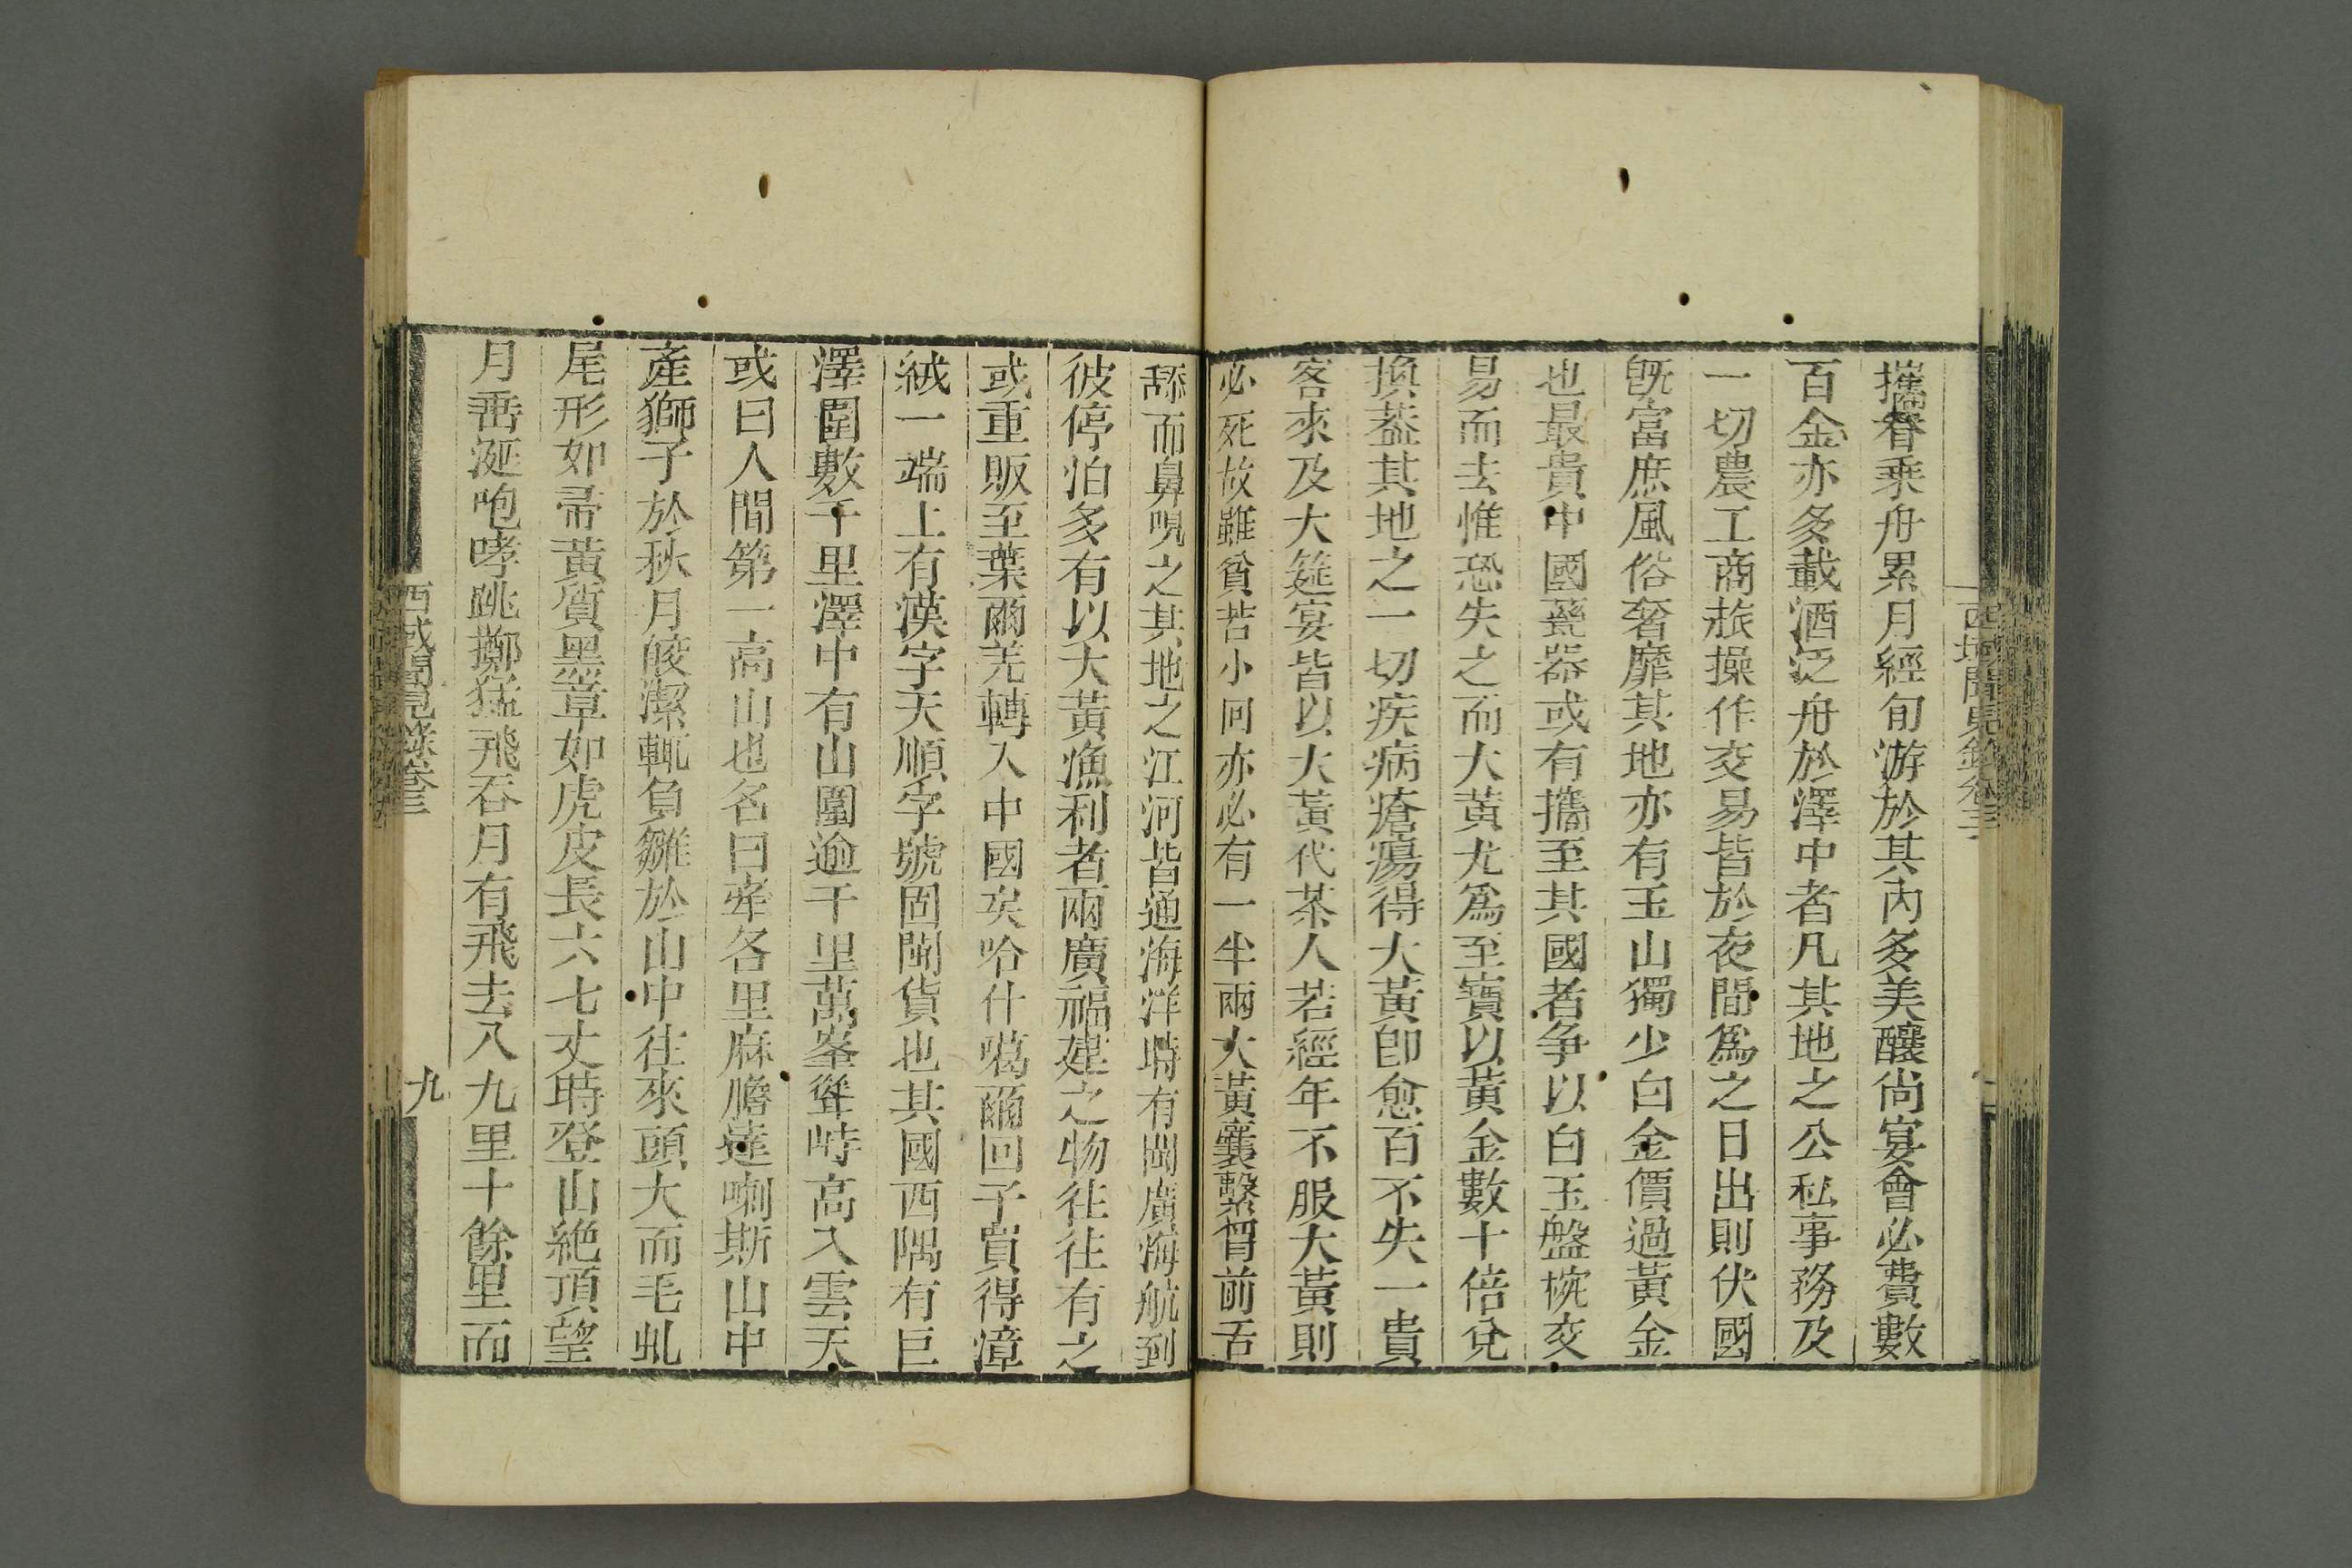 西域聞見錄卷三
攜眷乘舟累月經旬游於其內多美釀尚宴會必費數
百金亦多載酒泛舟於澤中者凡其地之公私事務及
一切農工商旅操作交易皆於夜間爲之日出則伏國
旣富庶風俗奢靡其地亦有玉山獨少白金價過黃金
也最貴中國甆器或有攜至其國者争以白玉盤椀交
易而去惟恐失之而大黃尤爲至寶以黃金數十倍兌
換葢其地之一切疾病瘡瘍得大黃卽愈百不失一貴
客來及大筵宴皆以大黃代茶人若經年不服大黃則
必死故雖貧苦小囘亦必有一半兩大黃囊繫胷前舌
舔而鼻嗅之其地之江河皆通海洋時有閩廣海航到
彼停泊多有以大黃漁利者兩廣福建之物往往有之
或重販至葉爾羌轉入中國矣哈什噶爾回子買得漳
絨一端上有漢字天順字號固閩貨也其國西隅有巨
澤圍數千里澤中有山圍逾千里萬峯聳峙高入雲天
或曰人間第一高山也名曰牽各里麻膽達喇斯山中
產獅子於秋月皎潔輒負雛於山中往來頭大而毛虬
尾形如帚黃質黑章如虎皮長六七丈時登山絶頂望
月垂涎咆哮跳擲猛飛吞月有飛去八九里十餘里而
西域聞見錄卷三
九